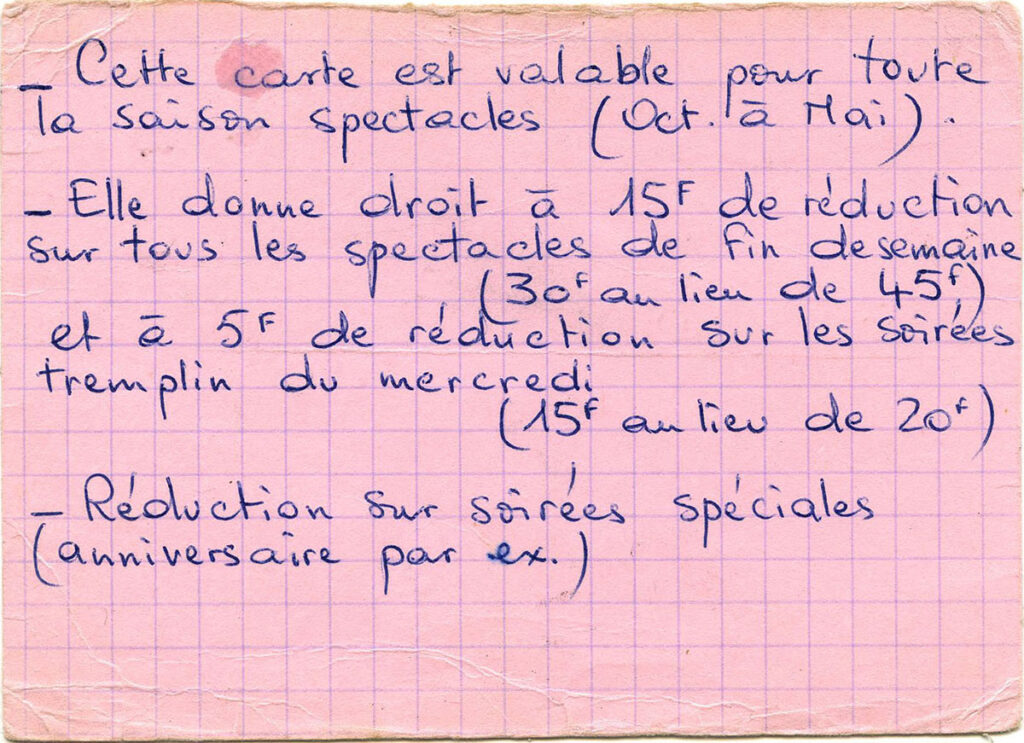 - Cette carte est valable pour toute
la saison spectacles (Oct. à Mai).
- Elle donne droit à 15F de réduction
sur tous les spectacles de fin de semaine
(30F au lieu de 45F)
et à 5F de réduction sur les soirées
tremplin du mercredi
(15F au lieu de 20F)
- Réduction sur soirées spéciales
(anniversaire par ex.)